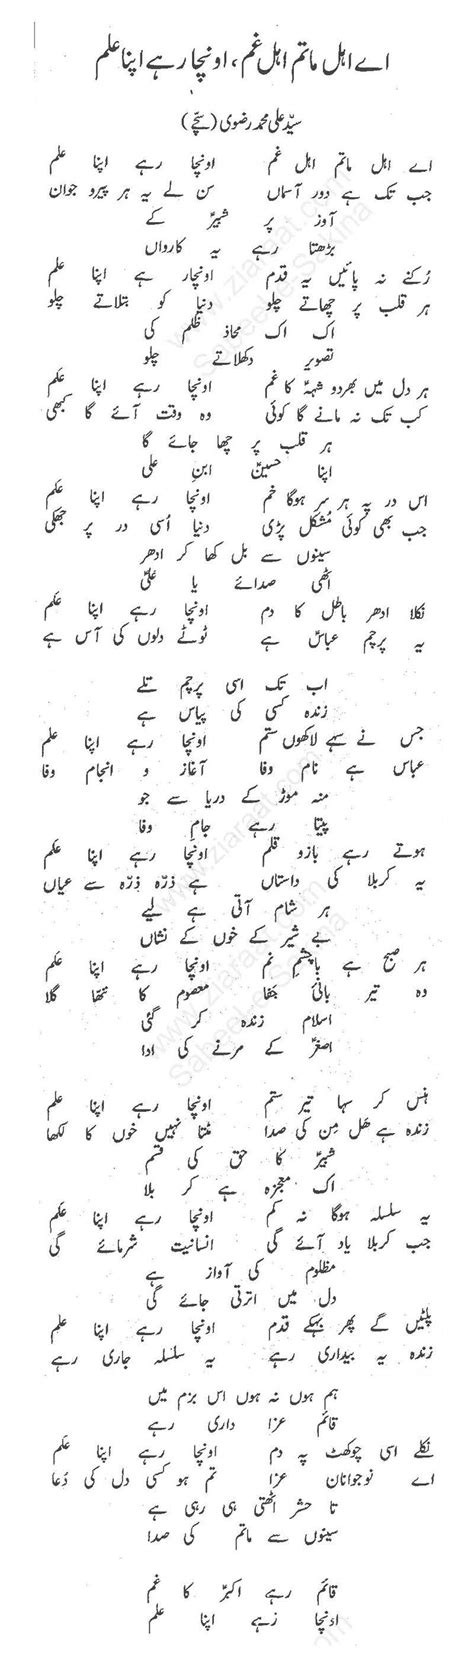 اے اہل ماتم اہل غم، اونچا رہے اپنا علم
سیّد علی محمد رضوی (سچّے)
اے اہل ماتم اہل غم اونچا رہے اپنا علم
جب تک ہے دور آسماں سن لے یہ ہر پیرو جوان
آوز پر شبیرؑ کے
بڑھتا رہے یہ کارواں
رُکنے نہ پائیں یہ قدم اونچار ہے اپنا علم
ہر قلب پر چھاتے چلو دنیا کو بتلاتے چلو
اک اک محاذ ظلم کی
تصویر دکھلاتے چلو
ہر دل میں بھردو شہہؑ کا غم اونچا رہے اپنا علم
کب تک نہ مانے گا کوئی وہ وقت آئے گا کبھی
ہر قلب پر چھا جائے گا
اپنا حسینؑ ابنِ علی
اس در پہ ہر سر ہوگا خم اونچا رہے اپنا علم
جب بھی کوئی مُشکل پڑی دنیا اُسی در پر جھکی
سینوں سے بل کھا کر ادھر
اٹھی صدائے یا علیؑ
نکلا ادھر باطل کا دم اونچا رہے اپنا علم
یہ پرچم عباسؑ ہے ٹوٹے دلوں کی آس ہے
اب تک اسی پرچم تلے
زندہ کسی کی پیاس ہے
جس نے سہے لاکھوں ستم اونچا رہے اپنا علم
عباس ہے نام وفا آغاز و انجام وفا
منہ موڑ کے دریا سے جو
پیتا رہے جامِ وفا
ہوتے رہے بازو قلم اونچا رہے اپنا علم
یہ کربلا کی داستاں ہے ذرّہ ذرّہ سے عیاں
ہر شام آتی ہے لیے
بے شیر کے خوں کے نشاں
ہر صبح ہے باچشمِ نم اونچا رہے اپنا علم
وہ تیر بانیٔ جفا معصوم کا ننھا گلا
اسلام زندہ کر گئی
اصغرؑ کے مرنے کی ادا
ہنس کر سہا تیر ستم اونچا رہے اپنا علم
زندہ ہے ھَل مِن کی صدا مٹتا نہیں خوں کا لکھا
شبیرؑ کا حق کی قسم
اک معجزہ ہے کر بلا
یہ سلسلہ ہوگا نہ کم اونچا رہے اپنا علم
جب کربلا یاد آئے گی انسانیت شرمائے گی
مظلوم کی آواز ہے
دل میں اترتی جائے گی
پلٹیں گے پھر بہکے قدم اونچا رہے اپنا علم
زندہ یہ بیداری رہے یہ سلسلہ جاری رہے
ہم ہوں نہ ہوں اس بزم میں
قائم عزا داری رہے
نکلے اسی چوکھٹ پہ دم اونچا رہے اپنا علم
اے نوجوانان عزا تم ہو کسی دل کی دُعا
تا حشر اٹھتی ہی رہی ہے
سینوں سے ماتم کی صدا
قائم رہے اکبرؑ کا غم
اونچا رہے اپنا علم
www.ziaraat.com
Sabeel-e-Sakina
www.ziaraat.com
www.ziaraat.com
Sabeel-e-Sakina